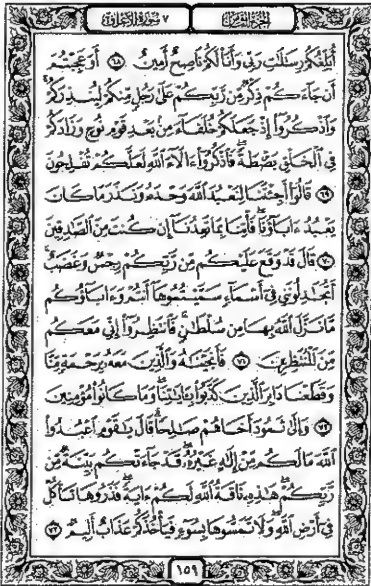 الجزء الثامن
٧ سورة الأعراف
أُبَلِّغُكُمْ رِسَٰلَٰتِ رَبِّى وَأَنَا۠ لَكُمْ نَاصِحٌ أَمِينٌ ٦٨ أَوَعَجِبْتُمْ
أَن جَآءَكُمْ ذِكْرٌ مِّن رَّبِّكُمْ عَلَىٰ رَجُلٍ مِّنكُمْ لِيُنذِرَكُمْ
وَٱذْكُرُوٓا۟ إِذْ جَعَلَكُمْ خُلَفَآءَ مِنۢ بَعْدِ قَوْمِ نُوحٍ وَزَادَكُمْ
فِى ٱلْخَلْقِ بَصْۜطَةً فَٱذْكُرُوٓا۟ ءَالَآءَ ٱللَّهِ لَعَلَّكُمْ تُفْلِحُونَ
٦٩ قَالُوٓا۟ أَجِئْتَنَا لِنَعْبُدَ ٱللَّهَ وَحْدَهُۥ وَنَذَرَ مَا كَانَ
يَعْبُدُ ءَابَآؤُنَا فَأْتِنَا بِمَا تَعِدُنَآ إِن كُنتَ مِنَ ٱلصَّٰدِقِينَ
٧٠ قَالَ قَدْ وَقَعَ عَلَيْكُم مِّن رَّبِّكُمْ رِجْسٌ وَغَضَبٌ
أَتُجَٰدِلُونَنِى فِىٓ أَسْمَآءٍ سَمَّيْتُمُوهَآ أَنتُمْ وَءَابَآؤُكُم
مَّا نَزَّلَ ٱللَّهُ بِهَا مِن سُلْطَٰنٍ فَٱنتَظِرُوٓا۟ إِنِّى مَعَكُم
مِّنَ ٱلْمُنتَظِرِينَ ٧١ فَأَنجَيْنَٰهُ وَٱلَّذِينَ مَعَهُۥ بِرَحْمَةٍ مِّنَّا
وَقَطَعْنَا دَابِرَ ٱلَّذِينَ كَذَّبُوا۟ بِـَٔايَٰتِنَا وَمَا كَانُوا۟ مُؤْمِنِينَ
٧٢ وَإِلَىٰ ثَمُودَ أَخَاهُمْ صَٰلِحًا قَالَ يَٰقَوْمِ ٱعْبُدُوا۟
ٱللَّهَ مَا لَكُم مِّنْ إِلَٰهٍ غَيْرُهُۥ قَدْ جَآءَتْكُم بَيِّنَةٌ مِّن
رَّبِّكُمْ هَٰذِهِۦ نَاقَةُ ٱللَّهِ لَكُمْ ءَايَةً فَذَرُوهَا تَأْكُلْ
فِىٓ أَرْضِ ٱللَّهِ وَلَا تَمَسُّوهَا بِسُوٓءٍ فَيَأْخُذَكُمْ عَذَابٌ أَلِيمٌ ٧٣
١٥٩